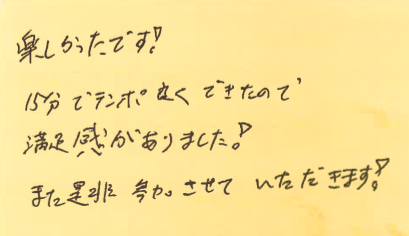 楽しかったです!
15分でテンポ良くできたので
満足感がありました!
また是非参加させていただきます!